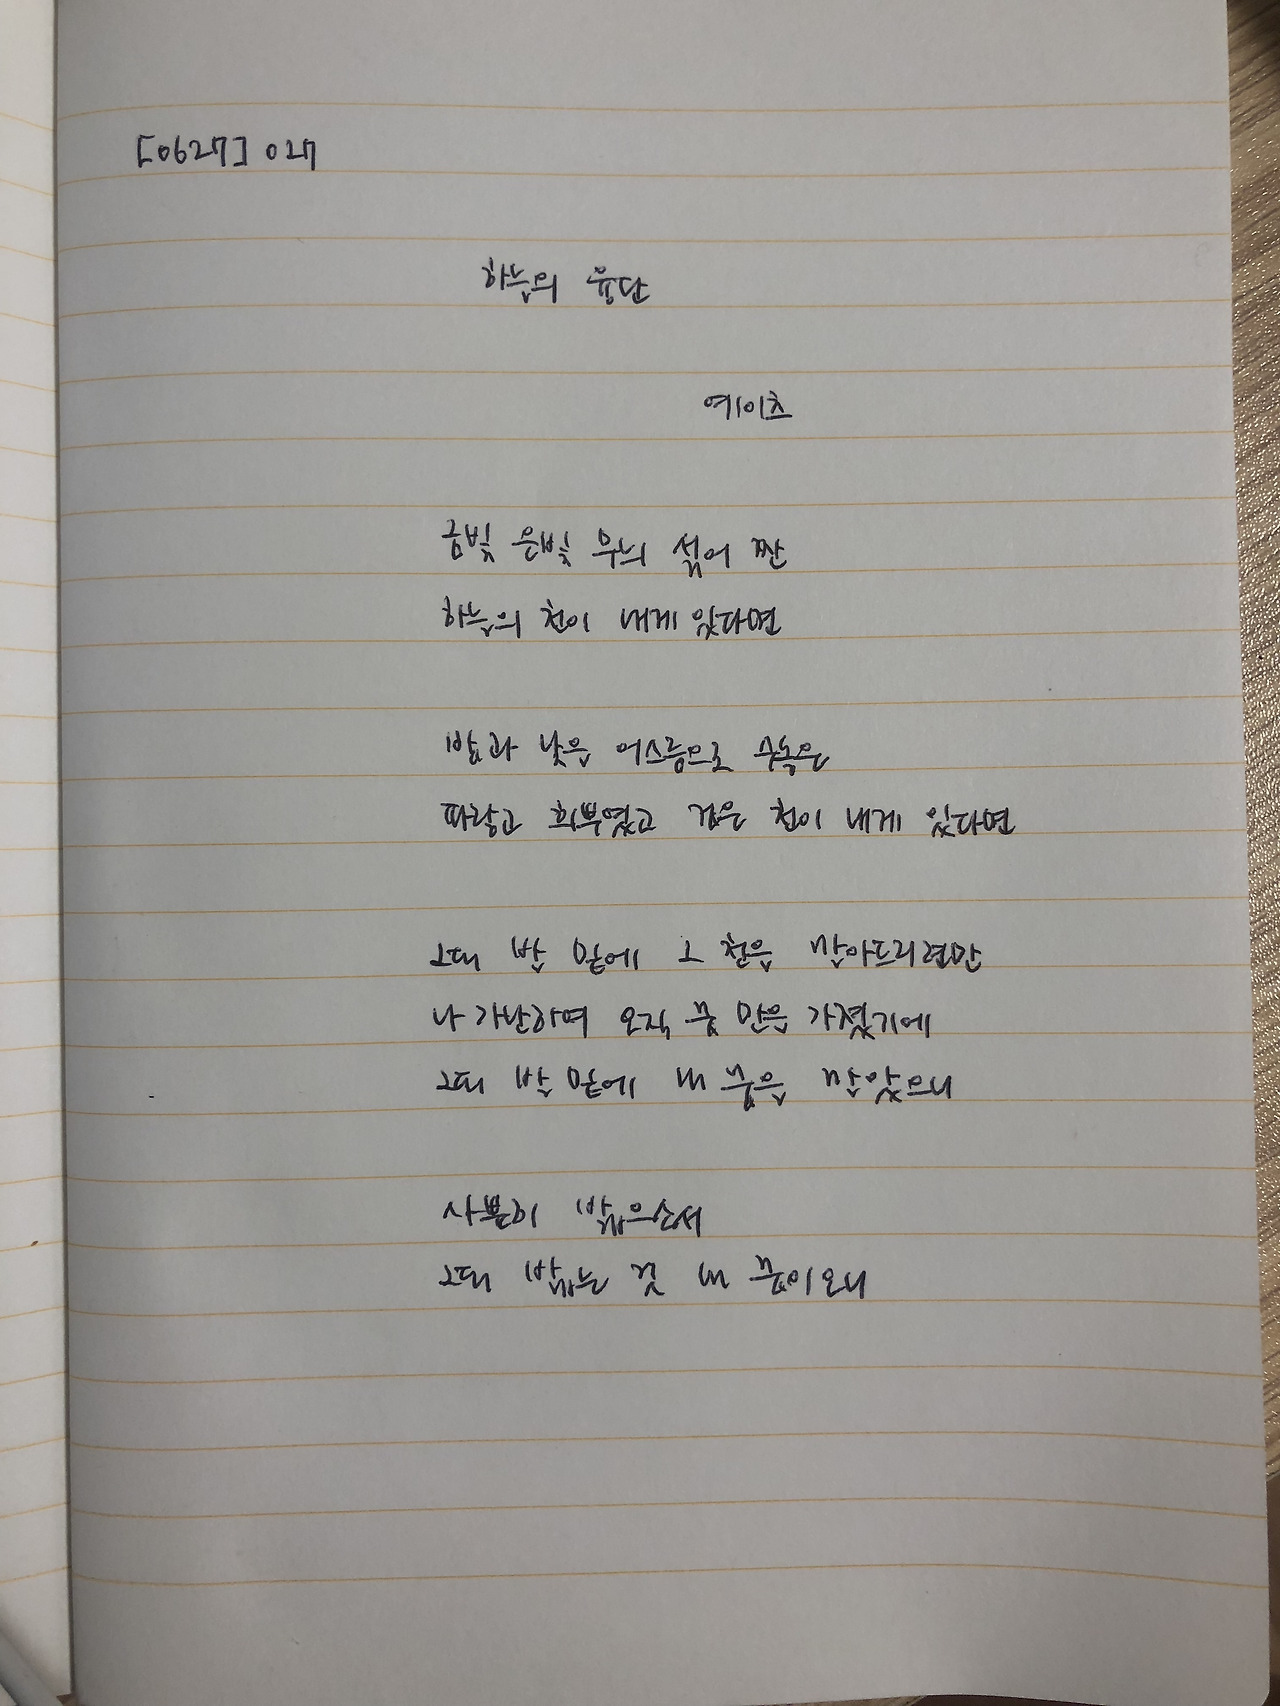 [0627] 027
하늘의 융단
예이츠
금빛 은빛 무늬 섞어 짠
하늘의 천이 내게 있다면
밤과 낮을 어스름으로 수놓은
파랗고 희부옇고 검은 천이 내게 있다면
그대 발 밑에 그 천을 깔아드리련만
나 가난하여 오직 꿈 만을 가졌기에
그대 발 밑에 내 꿈을 깔았으니
사뿐히 밟으소서
그대 밟는 것 내 꿈이오니